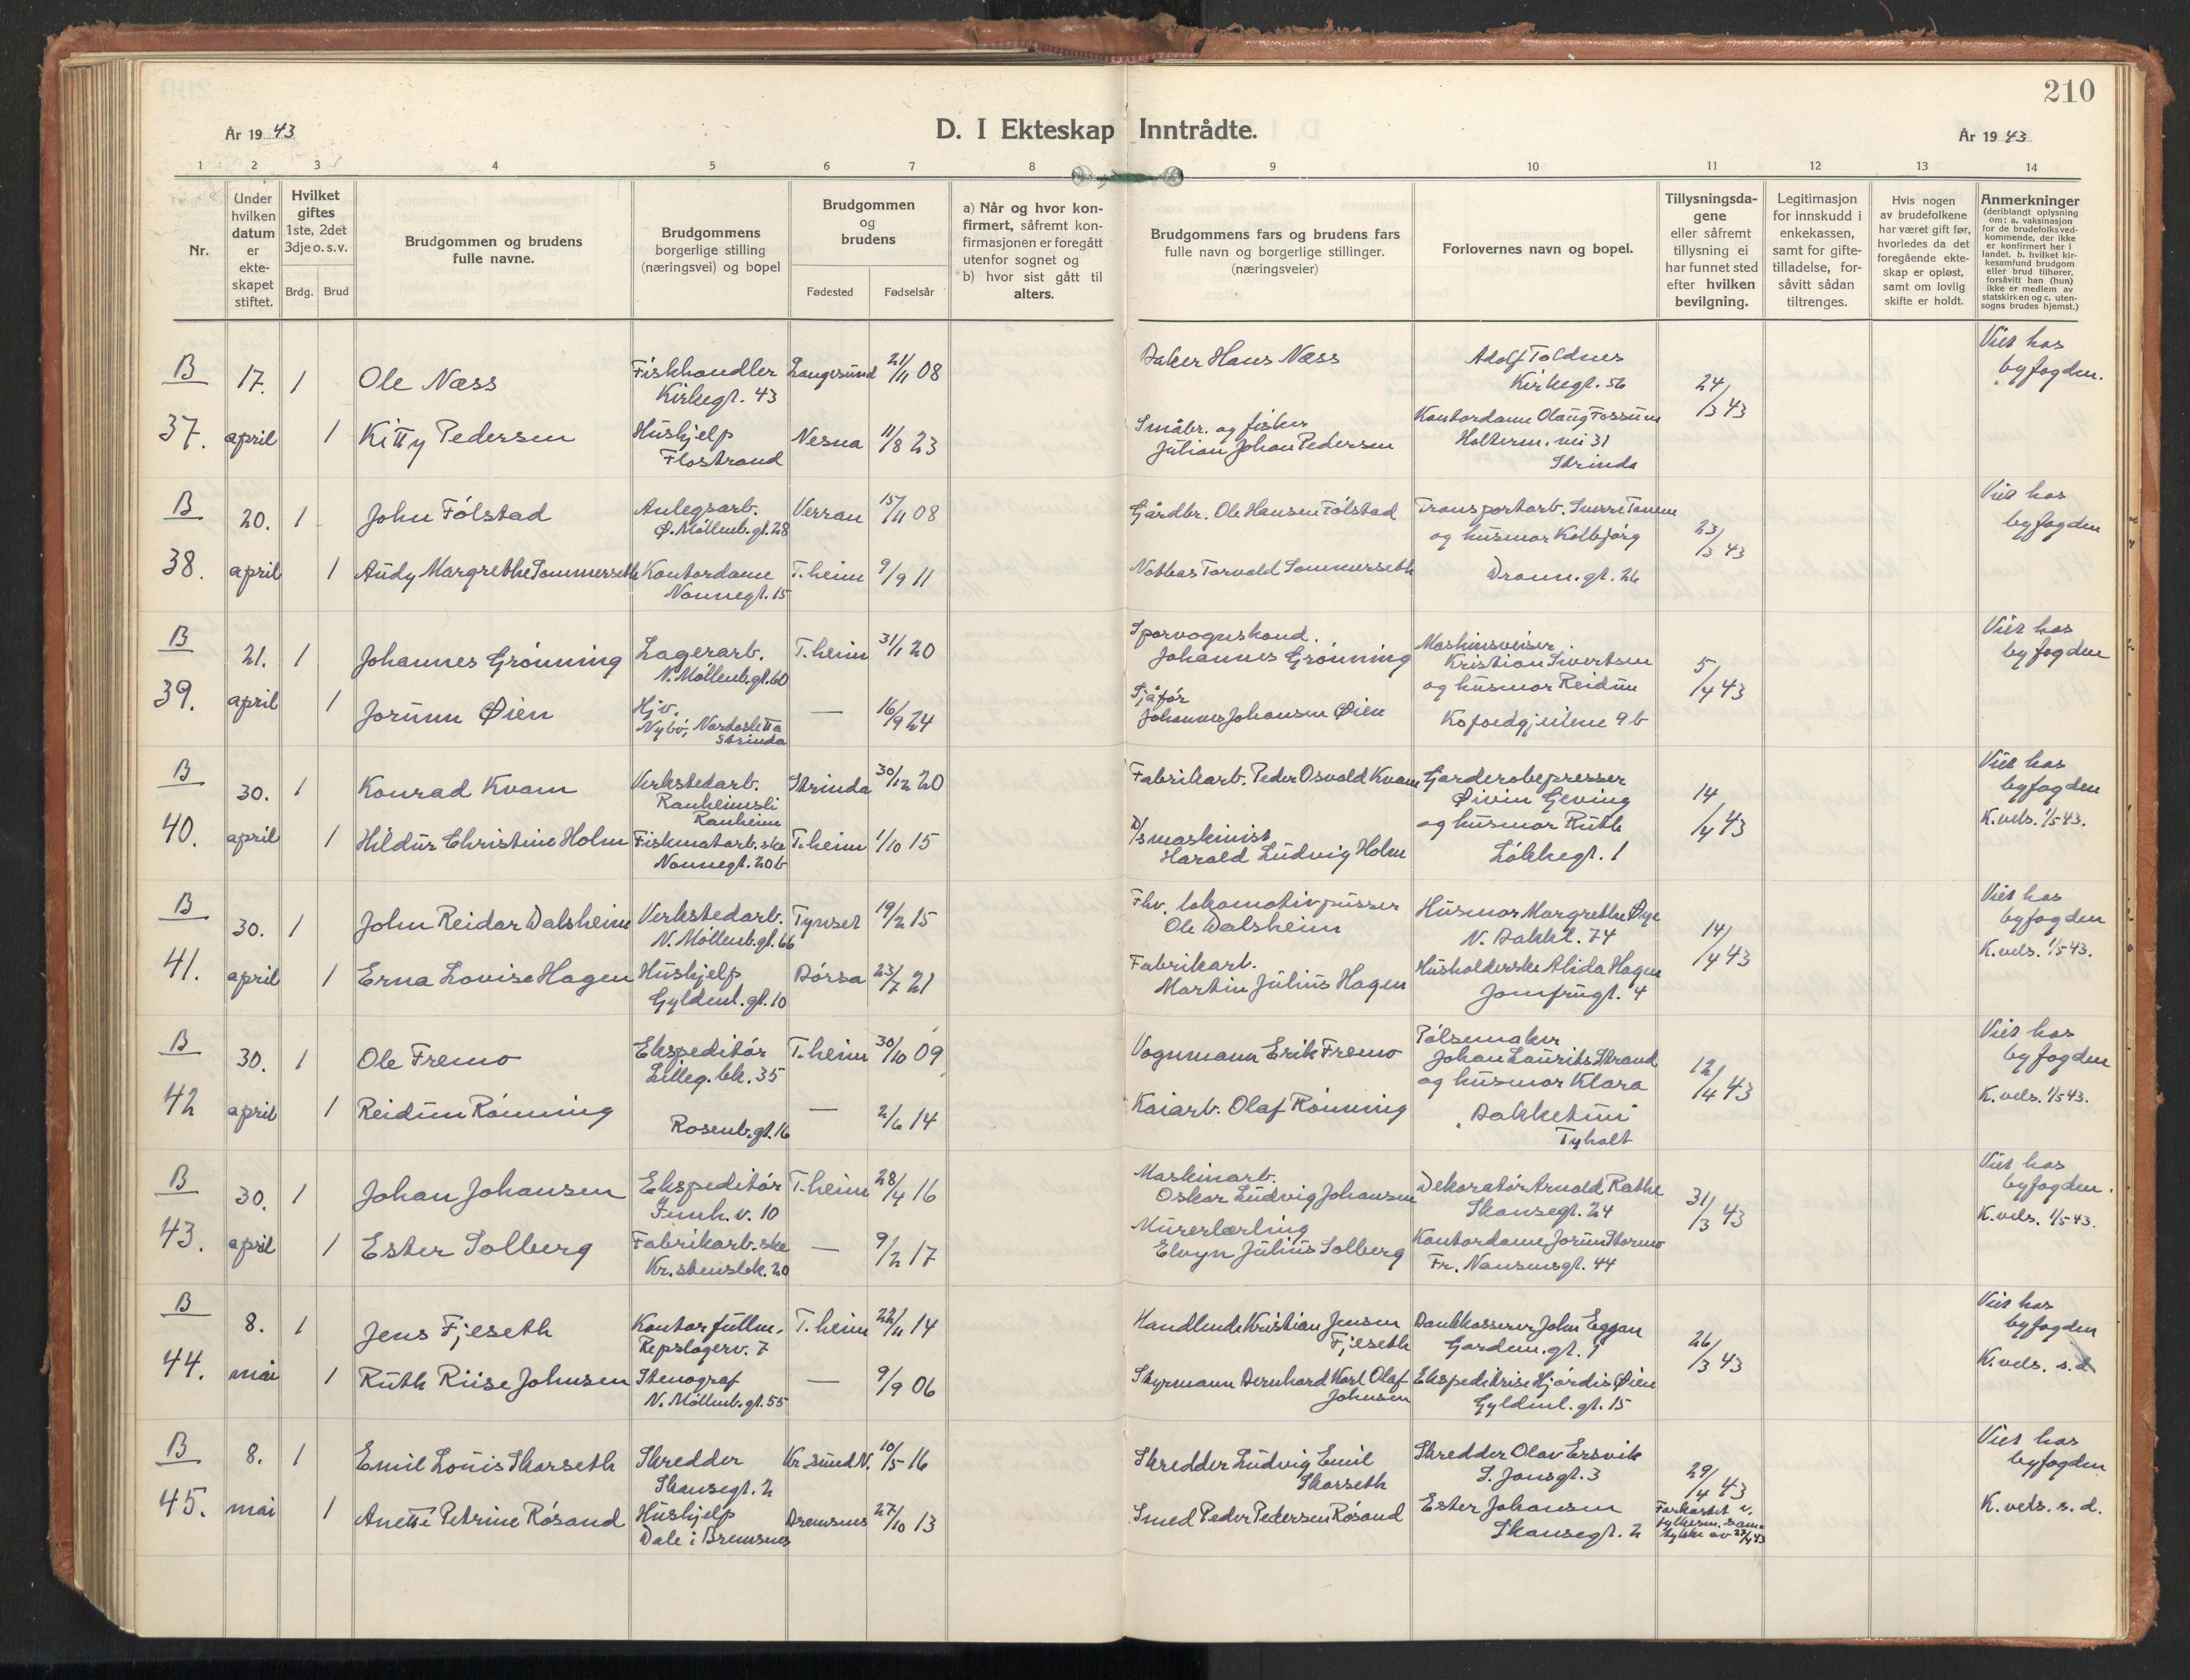 210
År 1943
D. I Ekteskap Inntrådte.
År 1943
1 2 3 4 5 6 7 8 9 10 11 12 13 14
Nr.
Under hvilken datum er ekte- skapet stiftet.
Hvilket giftes 1ste, 2det 3dje o. s. v.
Brdg. Brud
Brudgommen og brudens
fulle navne.
Brudgommens
borgerlige stilling
(næringsvei) og bopel
Brudgommen
og
brudens
Fødested Fødselsår
a) Når og hvor kon-
firmert, såfremt kon-
firmasjonen er foregått
utenfor sognet og
b) hvor sist gått til
alters.
Brudgommens fars og brudens fars
fulle navn og borgerlige stillinger.
(næringsveier)
Forlovernes navn og bopel.
Tillysningsda-
gene
eller såfremt
tillysning ei
har funnet sted
efter hvilken
bevilgning.
Legitimasjon
for innskudd i
enkekassen,
samt for gifte-
tilladelse, for-
såvitt sådan
tiltrenges.
Hvis nogen
av brudefolkene
har været gift før,
hvorledes da det
foregående ekte-
skap er opløst,
samt om lovlig
skifte er holdt.
Anmerkninger
(deriblandt oplysning
om: a. vaksinasjon
for de brudefolks ved-
kommende, der ikke
er konfirmert her i
landet. b. hvilket kir-
kesamfund brudgom
eller brud tilhører,
forsåvitt han (hun)
ikke er medlem av
statskirken og c. uten-
sogns brudes hjemst.)
B 17. 1 Ole Næss Fiskhandler Kirkegt. 43 Langesund 21/11 08 Baker Hans Næss Adolf Toldnes Kirkegt. 56 24/3 43 Viet hos byfogden.
37. april 1 Kitty Pedersen Hushjelp Flostrand Nesna 11/8 23 Småbr. og fisker Julian Johan Pedersen Kontordame Olaug Fossum Holterm. vei 31 Strinda
B 20. 1 John Fölstad Anlegsarb. Ø. Möllenb. gt. 28 Verran 15/11 08 Gårdbr. Ole Hansen Fölstad Transportarb. Sverre Tanem og husmor Kolbjörg 23/3 43 Viet hos byfogden
38. april 1 Audy Margrethe Sommerseth Kontordame Nonnegt. 15 T.heim 9/9 11 Notbas Torvald Sommerseth Dronn. gt. 26
B 21. 1 Johannes Grönning Lagerarb. N. Möllenb. gt. 60 T.heim 31/1 20 Sporvognskond. Johannes Grönning Maskinsveiser Kristian Sivertsen og husmor Reidun 5/4 43 Viet hos byfogden
39. april 1 Jorunn Øien Hjv. Nybö, Nardosletta Strinda — 16/9 24 Sjåför Johannes Johansen Øien Kofoedgjeilene 9b
B 30. 1 Konrad Kvam Verkstedarb. Ranheimsli Ranheim Strinda 30/12 20 Fabrikarb. Peder Osvald Kvam Garderobepresser Øivin Geving og husmor Ruth 14/4 43 Viet hos byfogden
40. april 1 Hildur Christine Holm Fiskmatarb.ske Nonnegt. 20b T.heim 1/10 15 D/s maskinist Harald Ludvig Holm Lökkegt. 1 K.vels. 1/5 43.
B 30. 1 John Reidar Dalsheim Verkstedarb. N. Möllenb. gt. 66 Tynset 19/2 15 Fhv. lokomotivpusser Ole Dalsheim Husmor Margrethe Øye N. Bakkl. 74 14/4 43 Viet hos byfogden
41. april 1 Erna Lovise Hagen Hushjelp Gyldenl. gt. 10 Börsa 23/7 21 Fabrikarb. Martin Julius Hagen Husholderske Alida Hagen Jomfrugt. 4 K.vels. 1/5 43.
B 30. 1 Ole Fremo Ekspeditör Lilleg. bk. 35 T.heim 30/10 09 Vognmann Erik Fremo Pölsemaker Johan Laurits Strand og husmor Klara 12/4 43 Viet hos byfogden
42 april 1 Reidun Rönning Rosenb. gt. 16 — 2/6 14 Kaiarb. Olaf Rönning Bakketun Tyholt K.vels. 1/5 43.
B 30. 1 Johan Johansen Ekspeditör Innh. v. 10 T.heim 28/4 16 Maskinarb. Oskar Ludvig Johansen Dekoratör Arnold Rathe Skansegt. 24 31/3 43 Viet hos byfogden.
43. april 1 Ester Solberg Fabrikarb.ske Kr.stensbk. 20 — 9/2 17 Murerlærling Elvyn Julius Solberg Kontordame Jorun Stormo Fr. Nansensgt. 44 K.vels. 1/5 43.
B 8. 1 Jens Fjeseth Kontorfullm. Repslagerv. 7 T.heim 22/11 14 Handlende Kristian Jensen Fjeseth Bankkasserer John Eggan Gardem. gt. 1 26/3 43 Viet hos byfogden
44. mai 1 Ruth Riise Johnsen Stenograf N. Möllenb. gt. 55 — 9/9 06 Styrmann Bernhard Karl Olaf Johnsen Ekspeditrise Hjördis Øien Gyldenl. gt. 15 K.vels. s.d.
B 8. 1 Emil Louis Skorseth Skredder Skansegt. 2 Kr.sund N. 10/5 16 Skredder Ludvig Emil Skorseth Skredder Olav Ersvik S. Jonsgt. 3 29/4 43 Viet hos byfogden
45. mai 1 Anetti Petrine Rösand Hushjelp Dale i Bremsnes Bremsnes 27/10 13 Smed Peder Pedersen Rösand Ester Johansen Skansegt. 2 Forkortet v. fylkesm. sam- tykke av 27/4 43 K.vels. s.d.